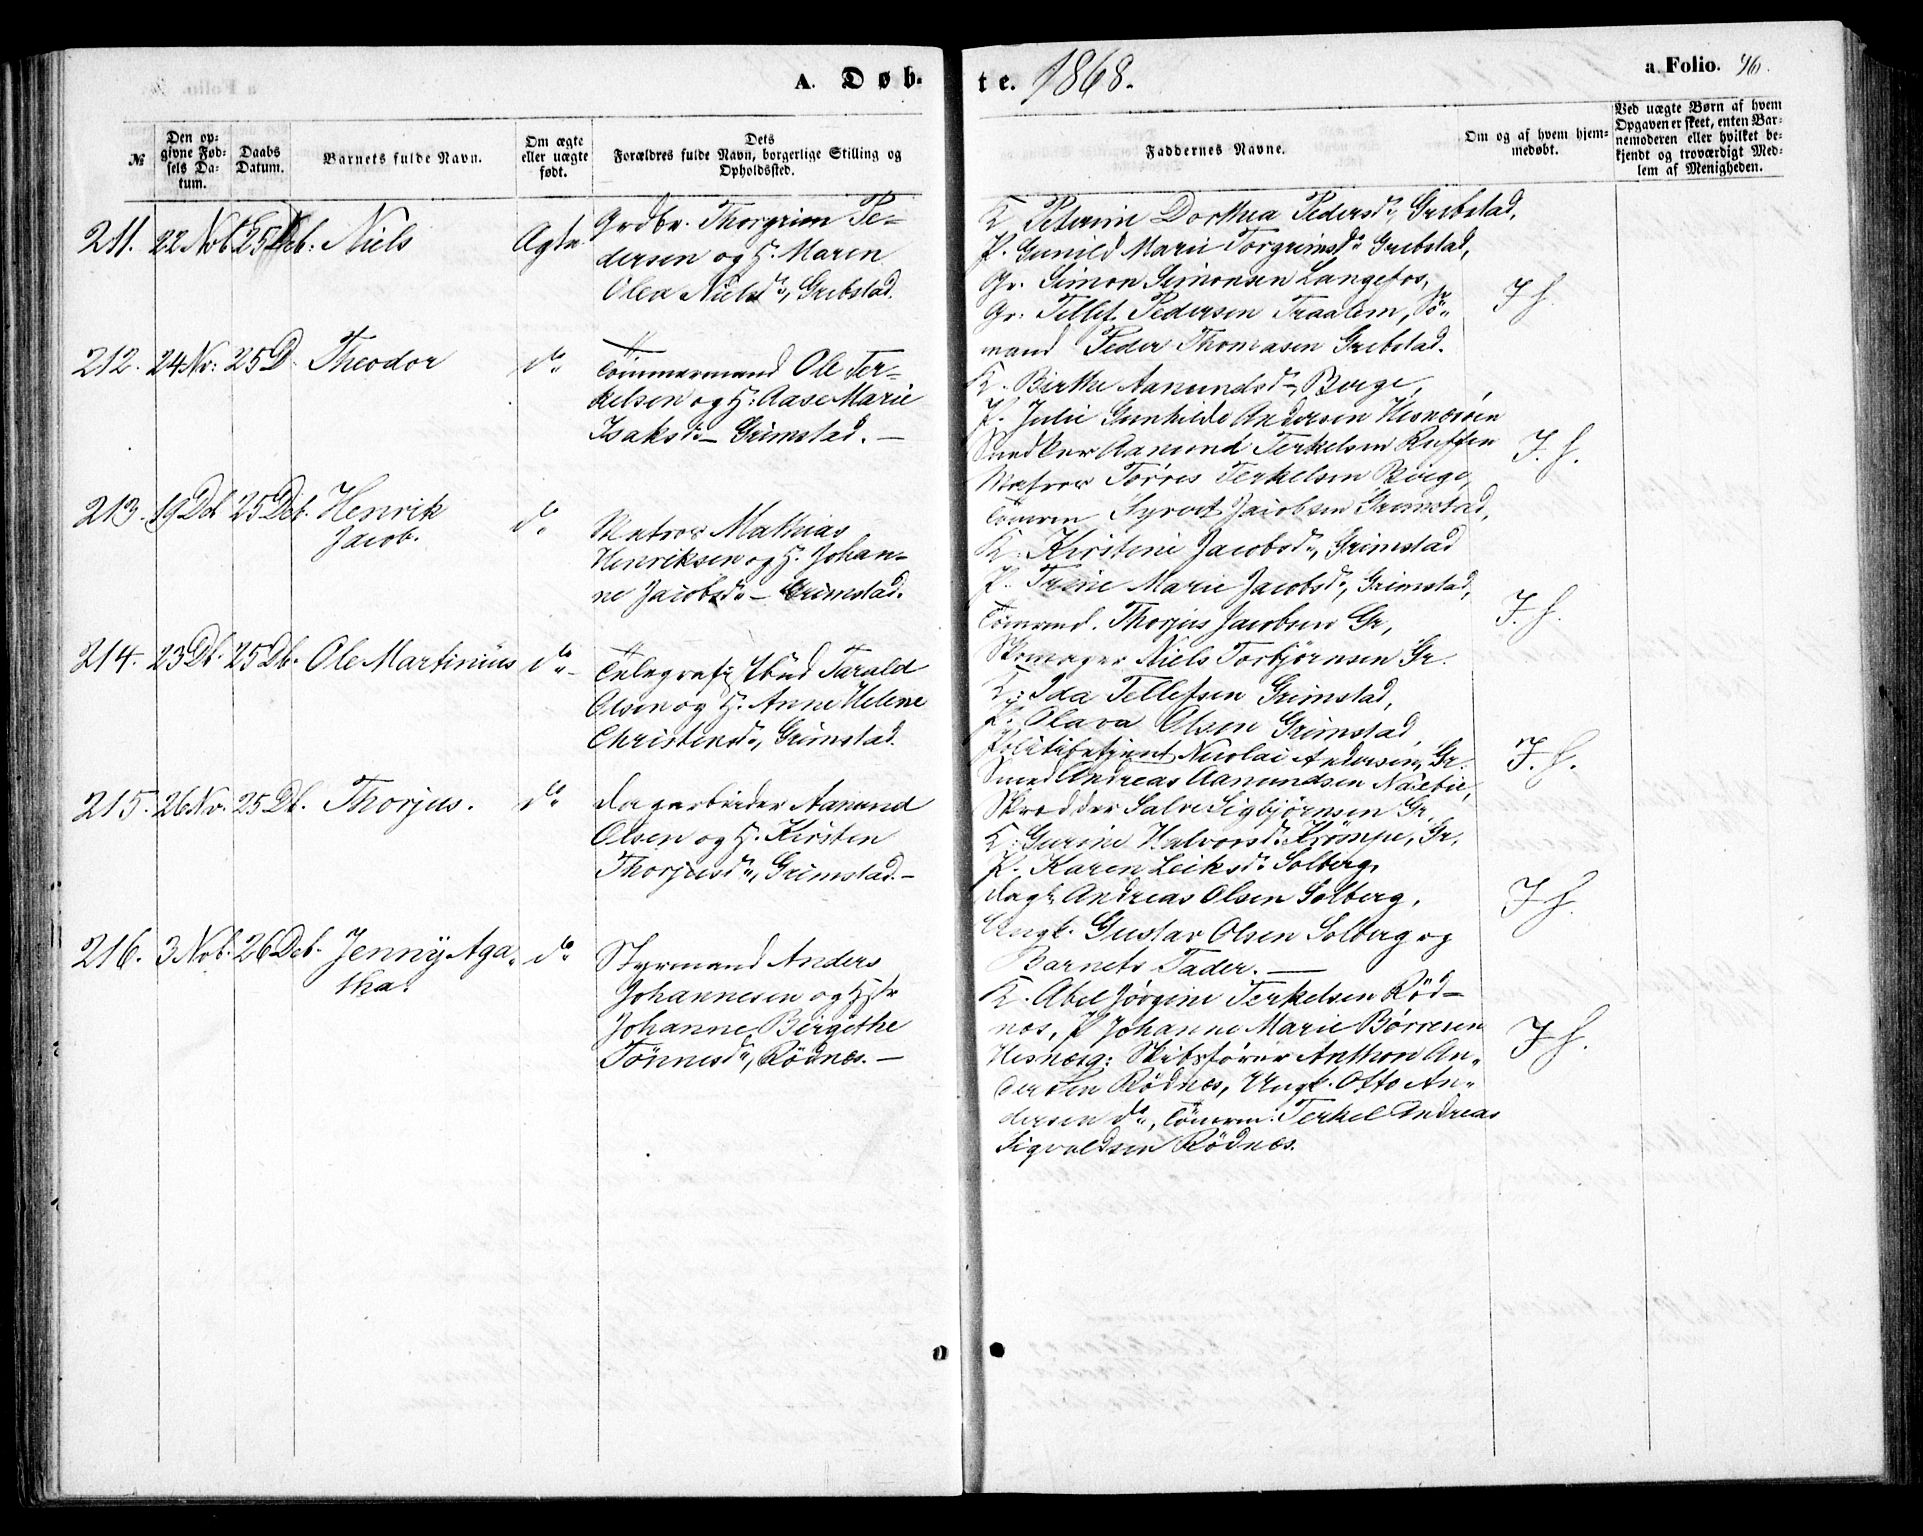 A. Døb-
te. 1868.
a. Folio. 76.
№
Den op-
givne Fød-
sels Da-
tum.
Daabs
Datum.
Barnets fulde Navn.
Om ægte
eller uægte
født.
Dets
Forældres fulde Navn, borgerlige Stilling og
Opholdssted.
Faddernes Navne.
Om og af hvem hjem-
medøbt.
Ved uægte Børn af hvem
Opgaven er skeet, enten Bar-
nemoderen eller hvilket be-
kjendt og troværdigt Med-
lem af Menigheden.
211. 22 Nob. 25 Deb. Niels
Ægte
Grdbr. Thorgrim Pe-
dersen og H. Maren
Olea Nielsd., Gribstad.
K. Peterine Dorthea Pedersd., Gribstad,
P. Gunild Marie Torgrimsd. Gribstad,
Gr. Simon Simonsen Langefos,
Gr. Tellef Pedersen Traalem, Sö-
mand Peder Thomasen Gribstad.
J f.
212. 24 Nv. 25 D. Theodor
do
Tömmermand Ole Ter-
kelsen og H. Aase Marie
Isaksd. - Grimstad. -
K. Birthe Aanundsd. Berge,
P. Julie Gunhilde Andersen Hesnesöen
Snedker Aanund Terkelsen
Matros Törres Terkelsen Berge,
Tömrm Syvert Jacobsen Grimstad,
J. f.
213. 19 Db 25 Deb. Henrik
Jacob.
do
Matros Mathias
Henriksen og H. Johan-
ne Jacobsd. - Grimstad.
K. Kirstine Jacobsd., Grimstad
P. Trine Marie Jacobsd., Grimstad,
Tömmd. Thorjus Jacobsen Gr,
Skomager Niels Torbjörnsen Gr.
J. f.
214. 23 Db. 25 Db. Ole Martinius
do
Telegrafistbud Tarald
Olsen og H. Anne Helene
Christensd., Grimstad.
K. Ida Tellefsen Grimstad,
P. Olava Olsen Grimstad,
Politibetjent Nicolai Andersen, Gr.
Smed Andreas Aanundsen
Skrædder Salve Sigbjörnsen Gr.
J. f.
215. 26 Nv. 25 Db. Thorjus.
do
Dagarbeider Aanund
Olsen og H. Kirsten
Thorjusd., Grimstad. -
K. Gurine Halvorsd. Krömpe, Gr.
P. Karen Leiksd. Solberg,
Dagl. Andreas Olsen Solberg,
Ungk. Gustav Olsen Solberg og
Barnets Fader. -
J f.
216. 3 Nob. 26 Deb. Jenny Aga-
tha.
do
Styrmand Anders
Johannesen og Hstr
Johanne Birgithe
Tönnesd., Rödnes. -
K. Abel Jörgine Terkelsen Röd-
nes, P Johanne Marie Börresen
Hesnesö: Skibsförer Anthon An-
dersen Rödnes, Ungk. Otto An-
dersen do, Tömrm: Terkel Andreas
Sigvaldsen Rödnes.
J f.